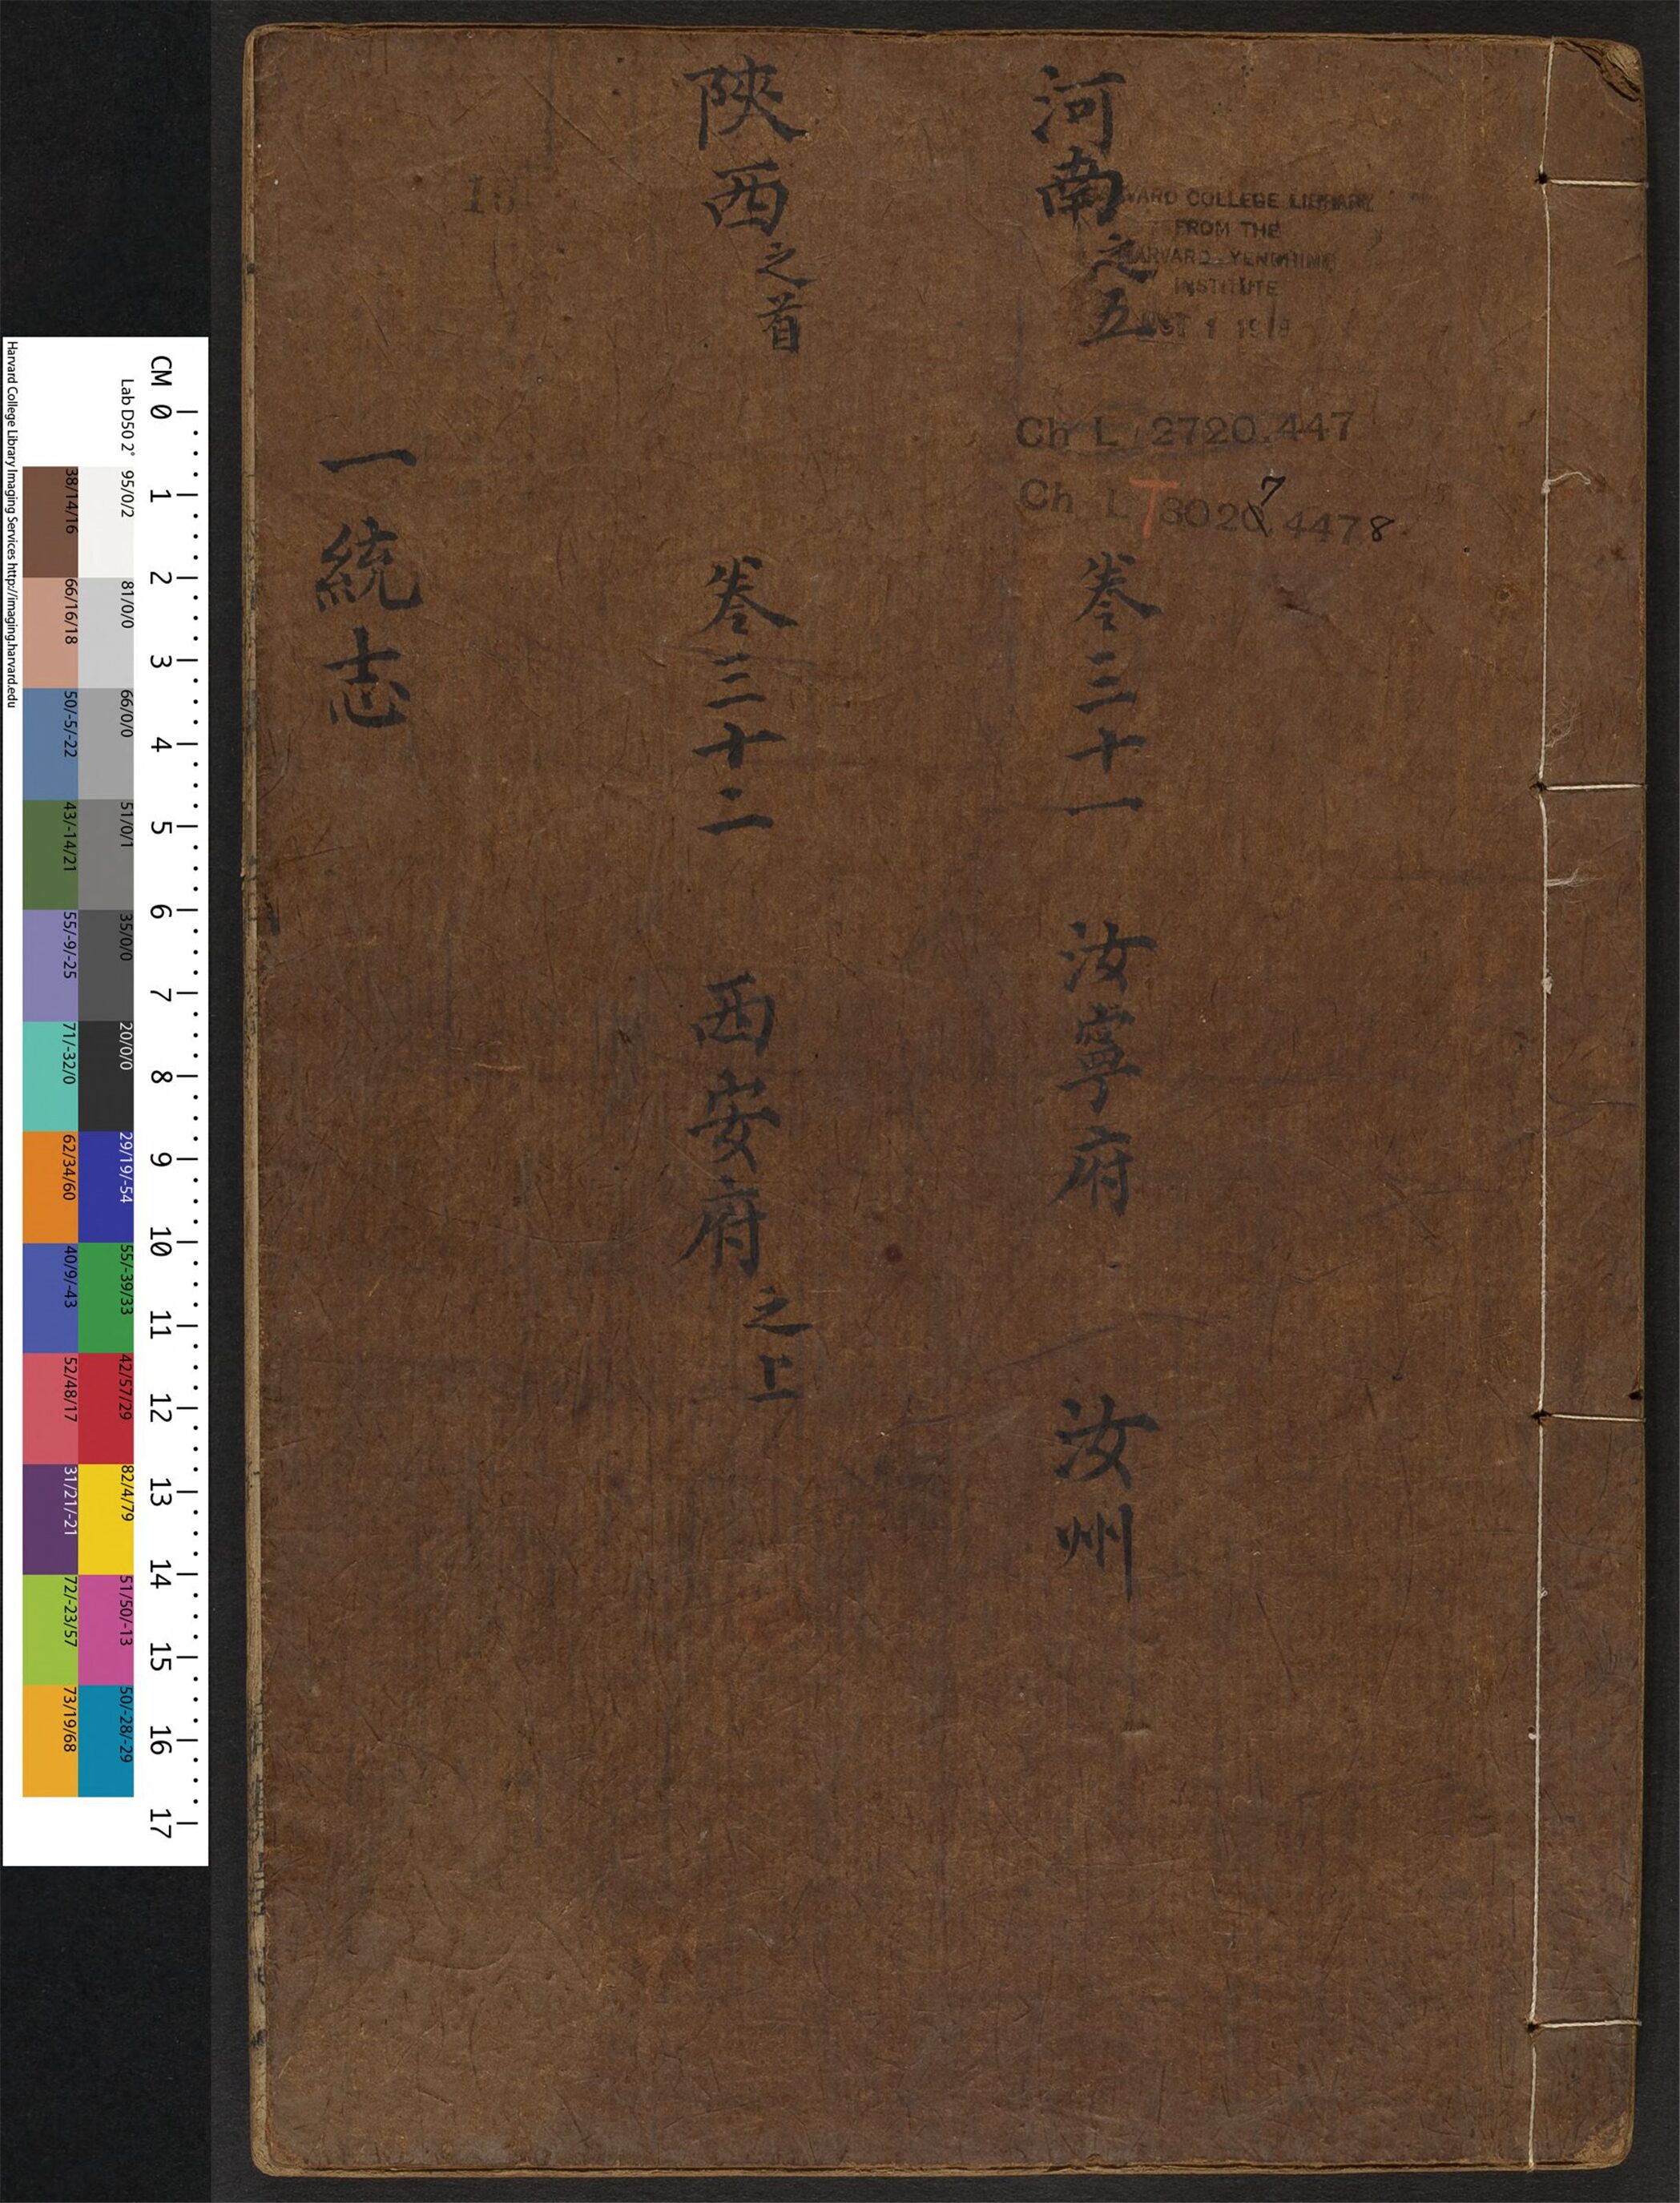 河南之五 卷三十一 汝寧府 汝州
陝西之首 卷三十二 西安府之上
一統志
HARVARD COLLEGE LIBRARY
FROM THE
HARVARD-YENCHING
INSTITUTE
Ch L 2720.447
Ch L T 3020 7 4478
16
CM 0 1 2 3 4 5 6 7 8 9 10 11 12 13 14 15 16 17
Lab D50 2° 95/0/2 81/0/0 66/0/0 51/0/1 35/0/0 20/0/0 29/19/-54 55/-39/33 42/57/29 82/4/79 51/50/-13 50/-28/-29
38/14/16 66/16/18 50/-5/-22 43/-14/21 55/-9/-25 71/-32/0 62/34/60 40/9/-43 52/48/17 31/21/-21 72/-23/57 73/19/68
Harvard College Library Imaging Services http://imaging.harvard.edu